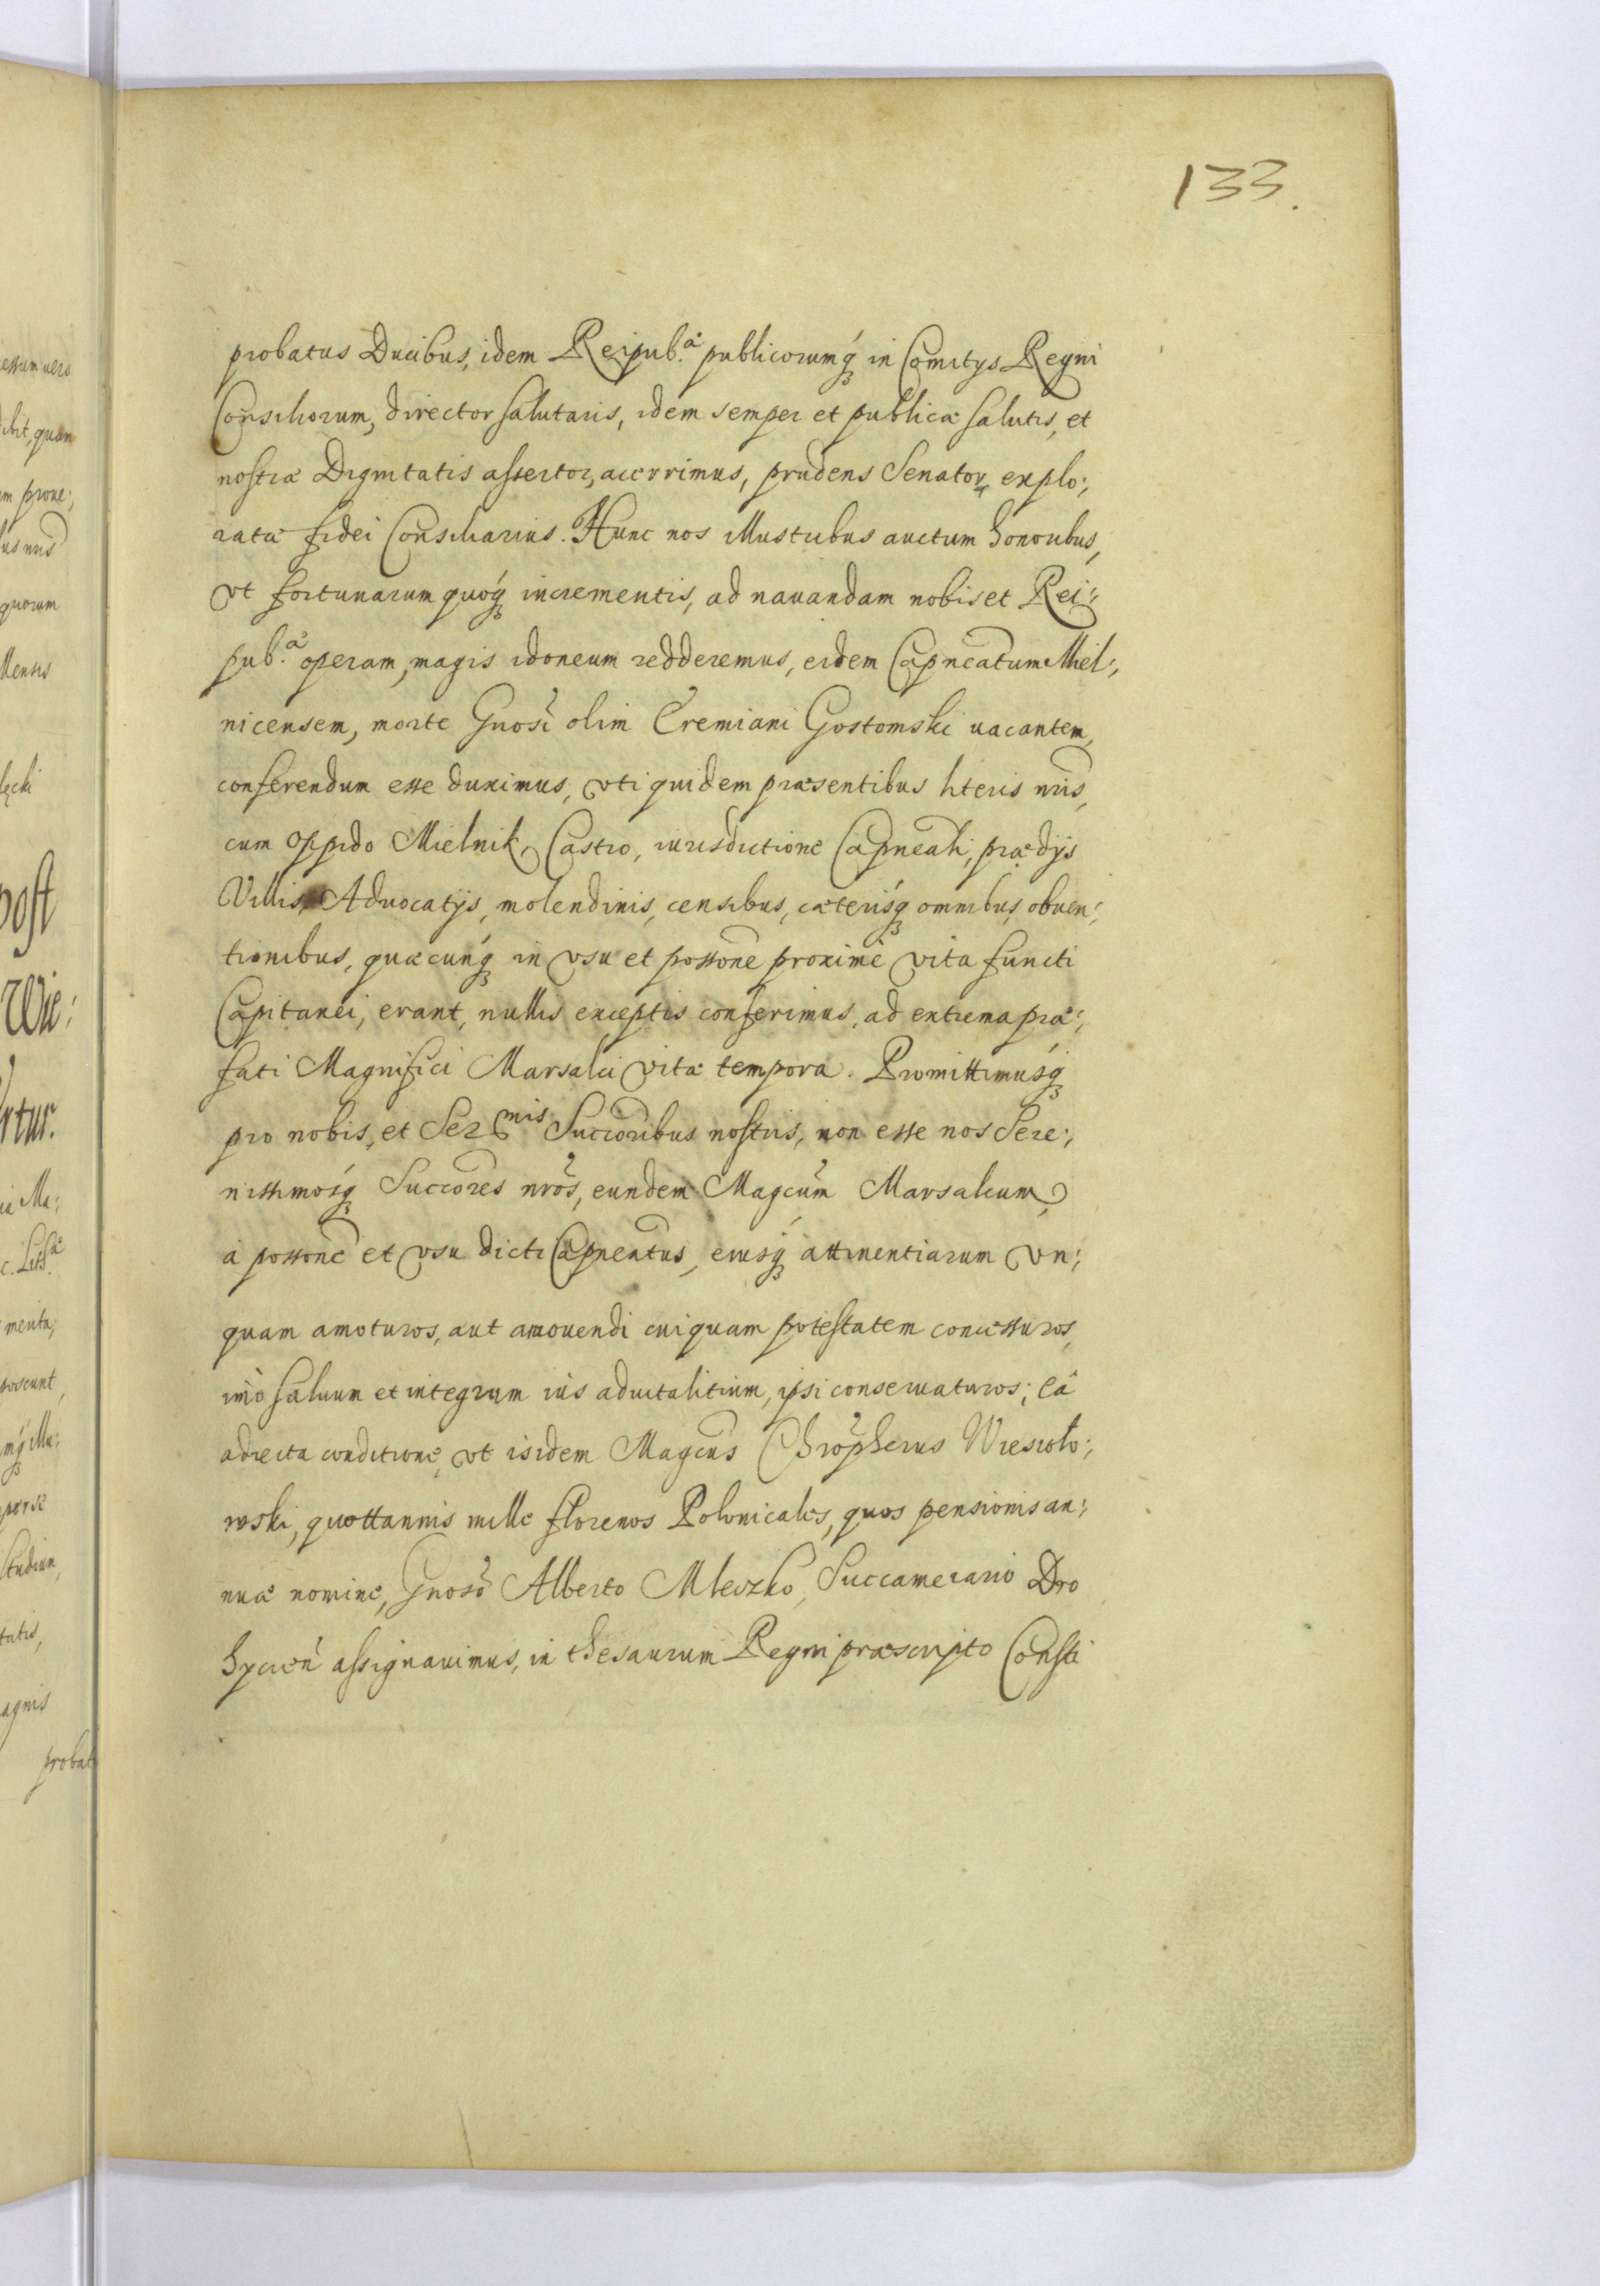 133.
probatus Ducibus, idem Reipub.æ publicorumq́ꝫ in Comitys Regni
Consiliorum, director salutaris, idem semper et publicæ salutis, et
nostræ Dignitatis assertor acerrimus, prudens Senator, explo:,
ratæ fidei Consiliarius. Hunc nos illustribus auctum honoribus,
vt fortunarum quoq́ꝫ incrementis, ad nauandam nobis et Rei:,
pub.æ operam, magis idoneum redderemus, eidem Capneatum Miel:,
nicensem, morte Gnosi olim Eremiani Gostomski uacantem,
conferendum esse duximus, vti quidem præsentibus literis nris,
cum oppido Mielnik, Castro, iurisdictione Capneali, prædijs
Villis, Aduocatijs, molendinis, censibus, cæterisq́ꝫ omnibus obuen:,
tionibus, quæcunq́ꝫ in vsu et possone proximè vita functi
Capitanei, erant, nullis exceptis conferimus, ad extrema præ:,
fati Magnifici Marsalci vitæ tempora. Promittimusq́ꝫ
pro nobis, et Ser mis Succoribus nostris, non esse nos Sere:,
nissimosq́ꝫ Succores nros, eundem Magcum Marsalcum,
à possone et vsu dicti Capneatus, eiusq́ꝫ attinentiarum vn:,
quam amoturos, aut amouendi cuiquam potestatem concessuros,
imò saluum et integrum ius aduitalitium, ipsi conseruaturos; eâ
adiecta conditione, vt is idem Magcus Chrophorus Wiesioło:,
wski, quottannis mille florenos Polonicales, quos pensionis an:,
nuæ nomine, Gnoso Alberto Mleczko, Succamerario Dro
hycień assignauimus, in thesaurum Regni præscripto Consti